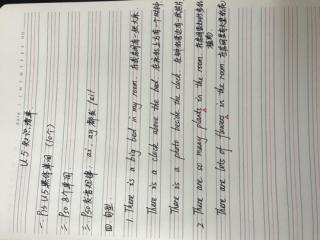 U5知识清单
一. P15 U5课本单词 (10个)
二. P50 8个单词
三. P50 发音规律: ai, ay 都发 /ei/
四 句型
1. There is a big bed in my room. 在我房间有一张大床.
There is a clock above the bed. 在床的上方有一个时钟
There is a photo beside the clock. 在钟的旁边有一张照片
2. There are so many plants in the room.
There are lots of flowers in the room.